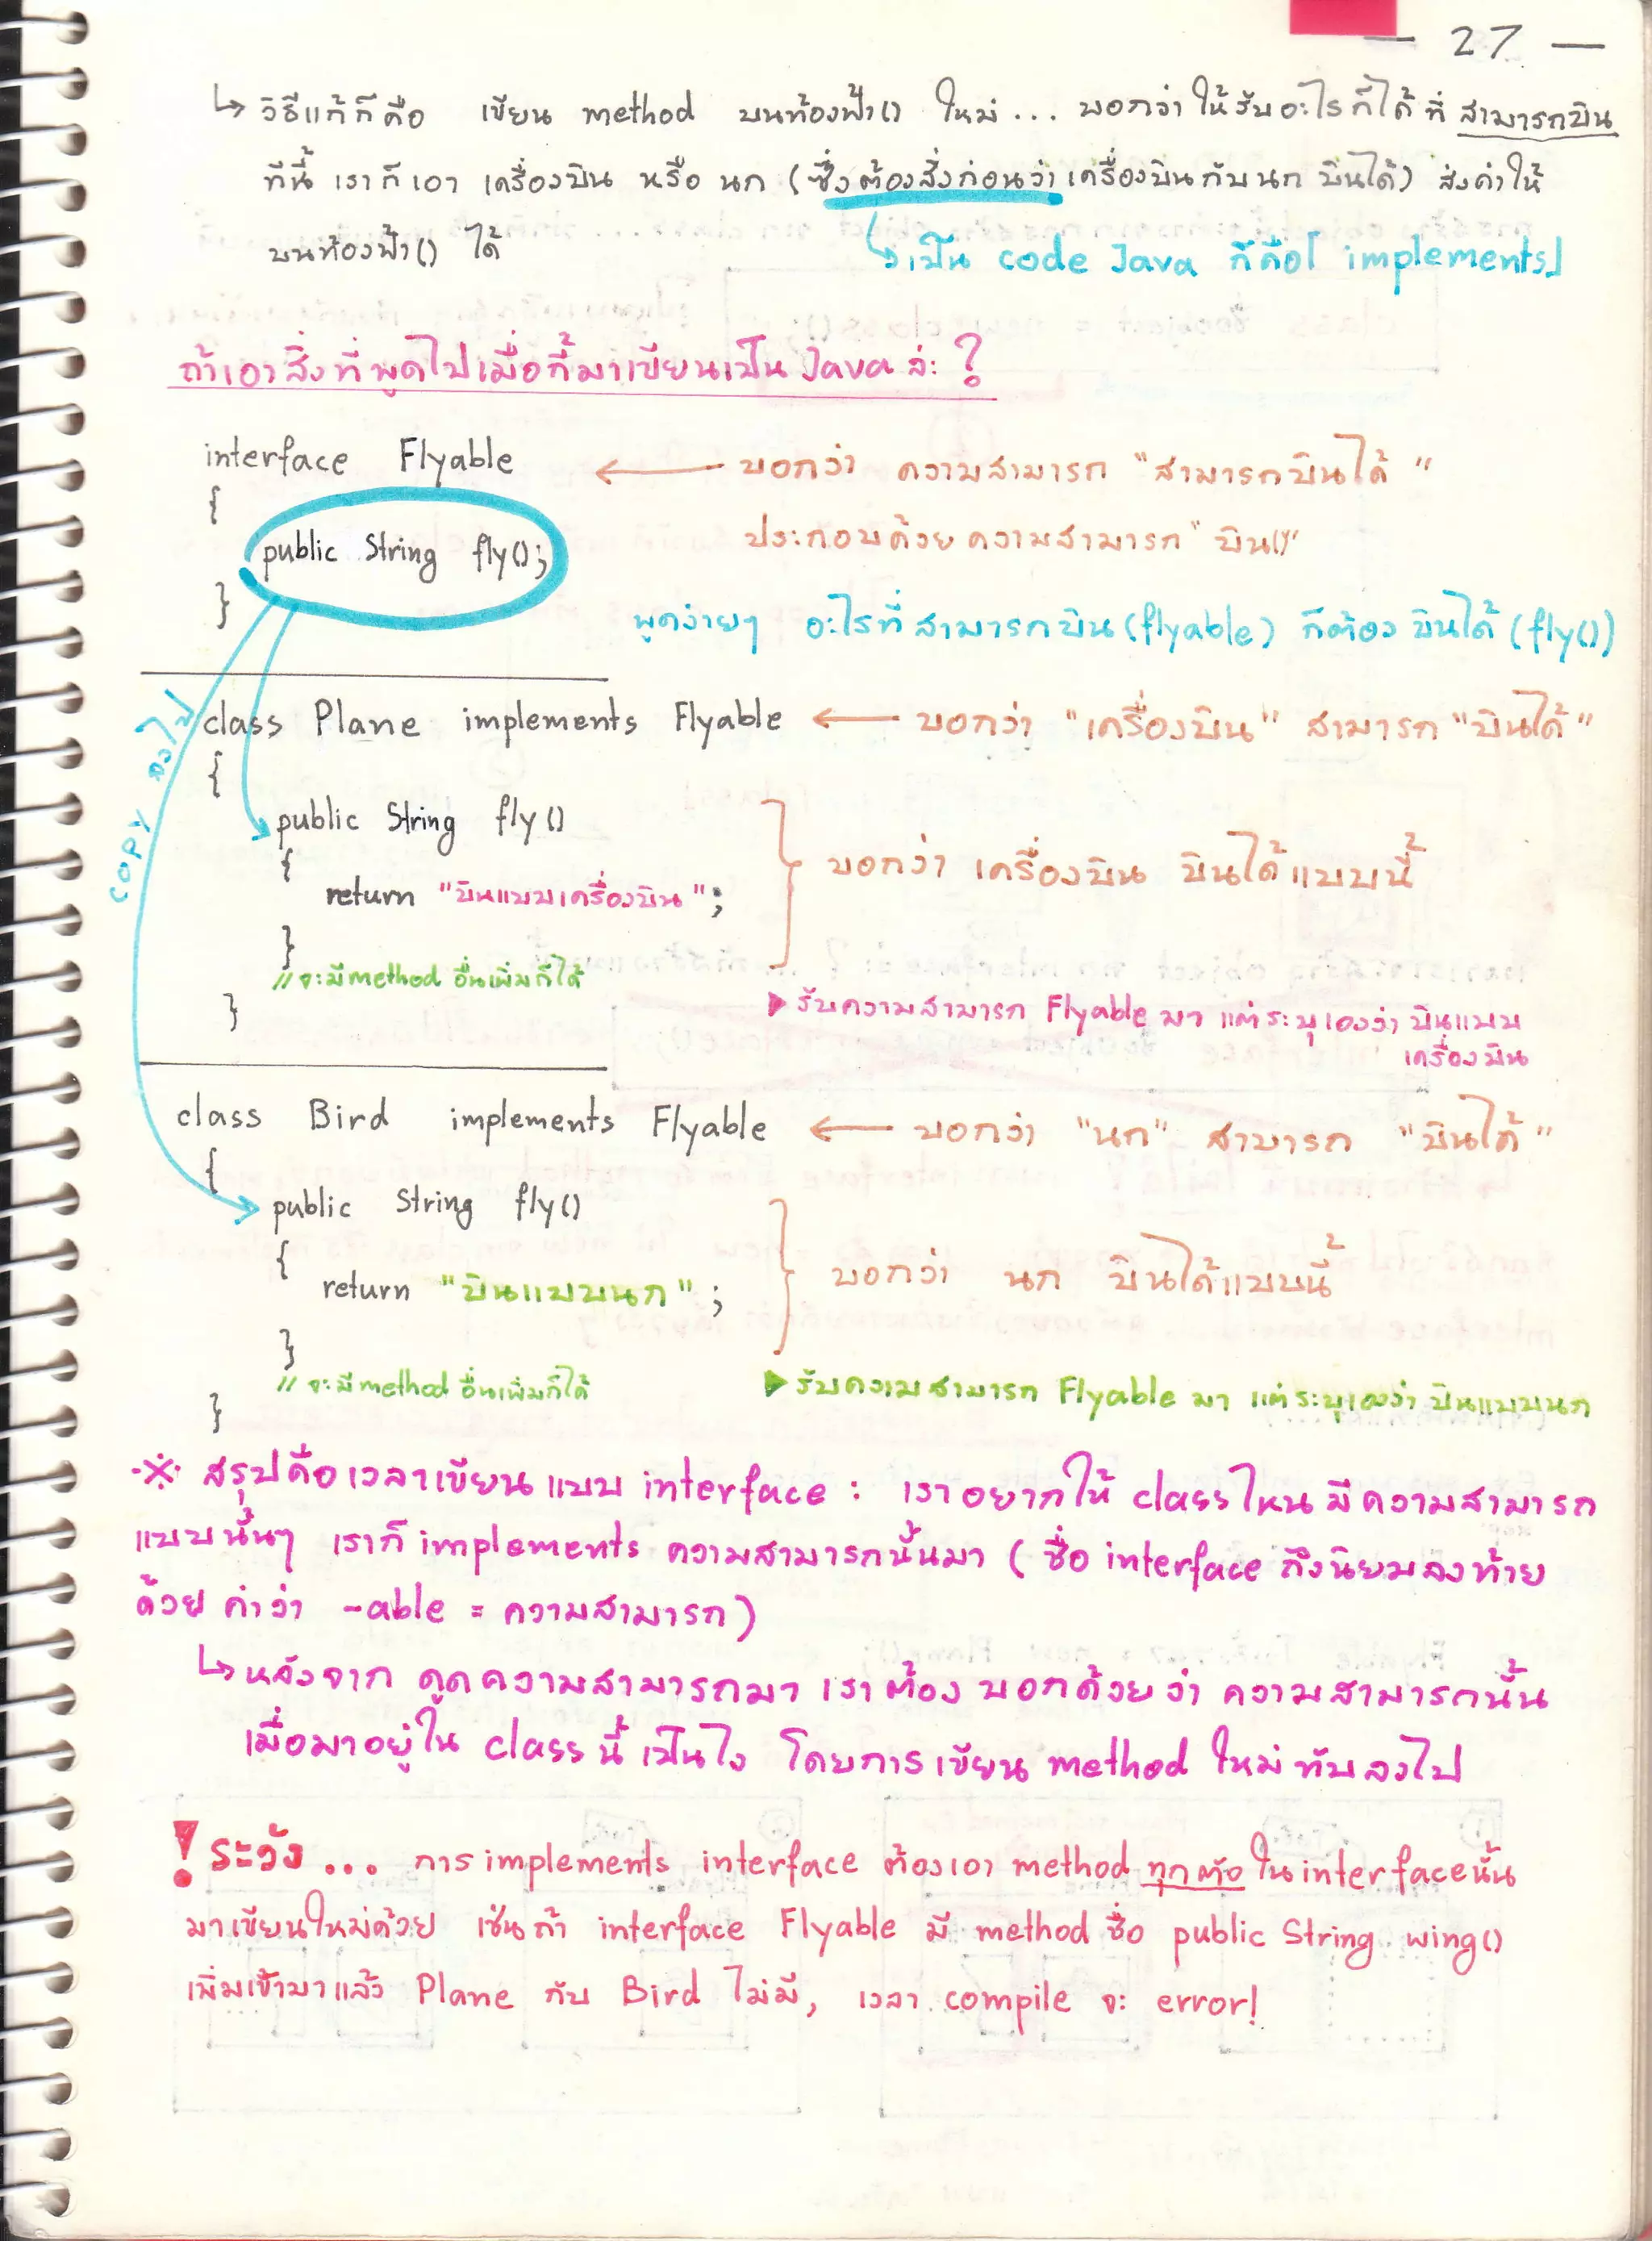 — 27 —
↳ วิธีแก้ก็คือ เขียน method บนท้องฟ้า() ใหม่... บอกว่าให้รับอะไรก็ได้ที่ สามารถบิน
ทีนี้ เราก็เอา เครื่องบิน หรือ นก (ซึ่งต้องสั่งก่อนว่า เครื่องบินกับนก บินได้) ส่งค่าให้
บนท้องฟ้า() ได้
↳ เป็น code Java ก็คือ「implements」
ถ้าเอาสิ่งที่พูดไปเมื่อกี้มาเขียนเป็น Java ล่ะ?
interface Flyable ← บอกว่า ความสามารถ "สามารถบินได้"
{
public String fly(); ประกอบด้วยความสามารถ "บิน()"
}
พูดง่ายๆ อะไรที่สามารถบิน (flyable) ก็ต้อง บินได้ (fly())
copy ลงไป
class Plane implements Flyable ← บอกว่า "เครื่องบิน" สามารถ "บินได้"
{
public String fly()
{
return "บินแบบเครื่องบิน"; บอกว่า เครื่องบิน บินได้แบบนี้
}
// จะมี method อื่นเพิ่มก็ได้
}
▶ รับความสามารถ Flyable มา แต่ระบุเองว่า บินแบบ
เครื่องบิน
class Bird implements Flyable ← บอกว่า "นก" สามารถ "บินได้"
{
public String fly()
{
return "บินแบบนก"; บอกว่า นก บินได้แบบนี้
}
// จะมี method อื่นเพิ่มก็ได้
}
▶ รับความสามารถ Flyable มา แต่ระบุเองว่า บินแบบนก
※ สรุปคือเวลาเขียนแบบ interface : เราอยากให้ class ไหน มีความสามารถ
แบบนั้นๆ เราก็ implements ความสามารถนั้นมา (ชื่อ interface ถึงนิยมลงท้าย
ด้วย คำว่า -able = ความสามารถ)
↳ หลังจาก ดูดความสามารถมา เราต้อง บอกด้วยว่า ความสามารถนั้น
เมื่อมาอยู่ใน class นี้ เป็นไง โดยการเขียน method ใหม่ทับลงไป
! ระวัง ... การ implements interface ต้องเอา method ทุกตัว ใน interface นั้น
มาเขียนใหม่ด้วย เช่นถ้า interface Flyable มี method ชื่อ public String wing()
เพิ่มเข้ามาแล้ว Plane กับ Bird ไม่มี, เวลา compile จะ error!